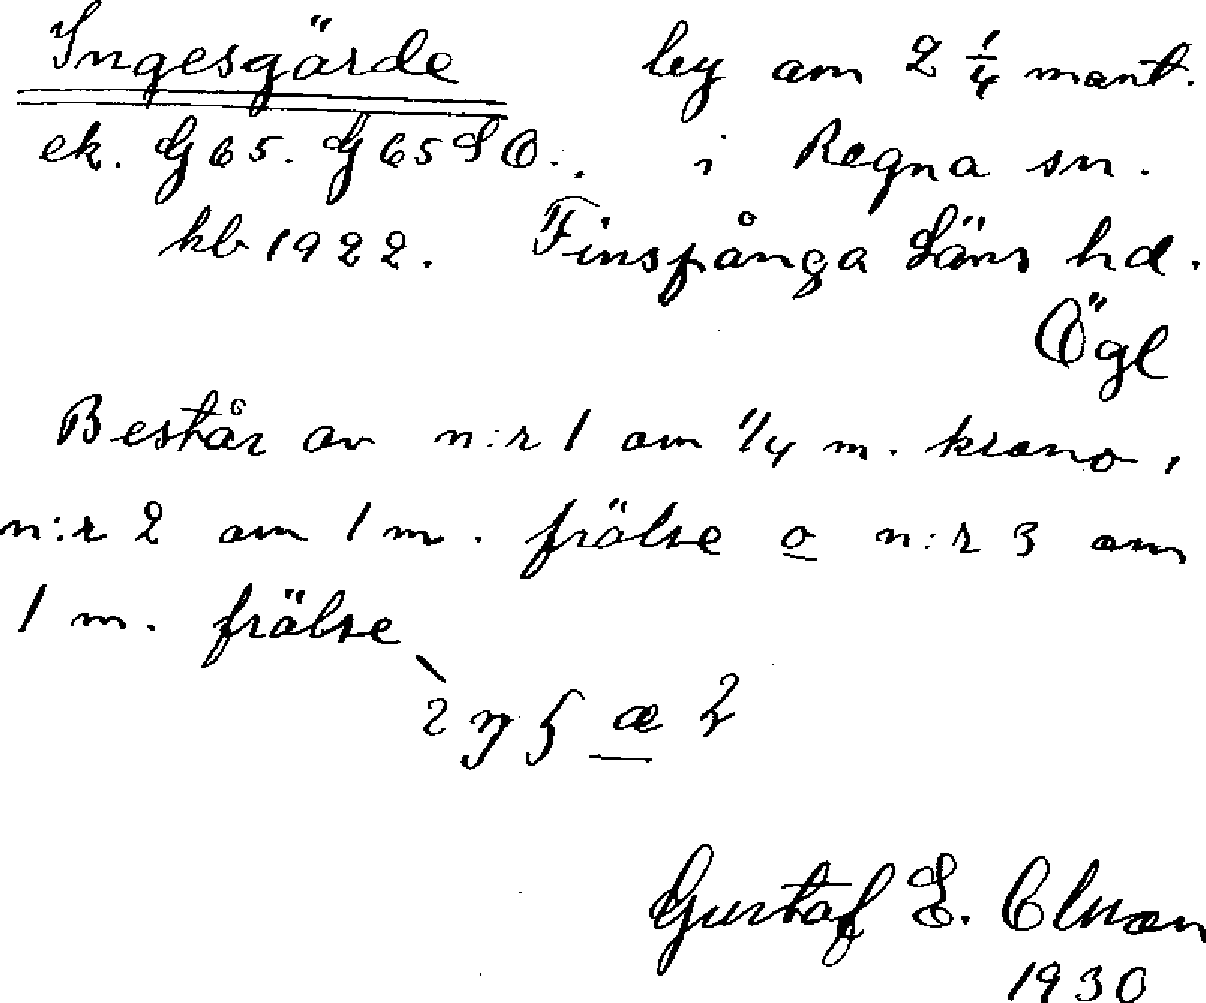 Ingesgärde by om 2 1/4 mant.
ek. G 65. G 65 SO. i Regna sn.
kb 1922. Finspånga Läns hd.
Ögl
Består av n:r 1 om 1/4 m. krono,
n:r 2 om 1 m. frälse o n:r 3 om
1 m. frälse
Gustaf E.
1930